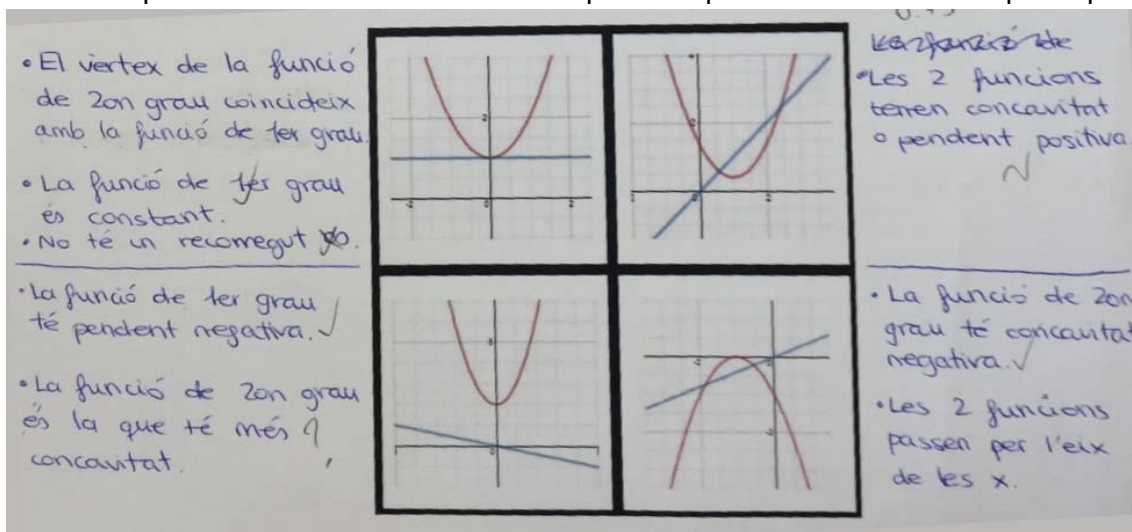 • El vertex de la funció
de 2on grau coincideix
amb la funció de 1er grau.
• La funció de 1er grau
és constant.
• No té un recorregut
• La funció de 1er grau
té pendent negativa.
• La funció de 2on grau
és la que té més ?
concavitat.
• Les 2 funcions
tenen concavitat
o pendent positiva.
• La funció de 2on
grau té concavitat
negativa.
• Les 2 funcions
passen per l'eix
de les x.